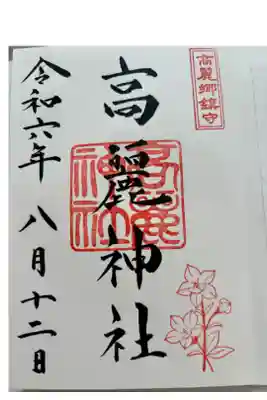 高麗郷鎮守
高麗神社
高麗神社
令和六年八月十二日